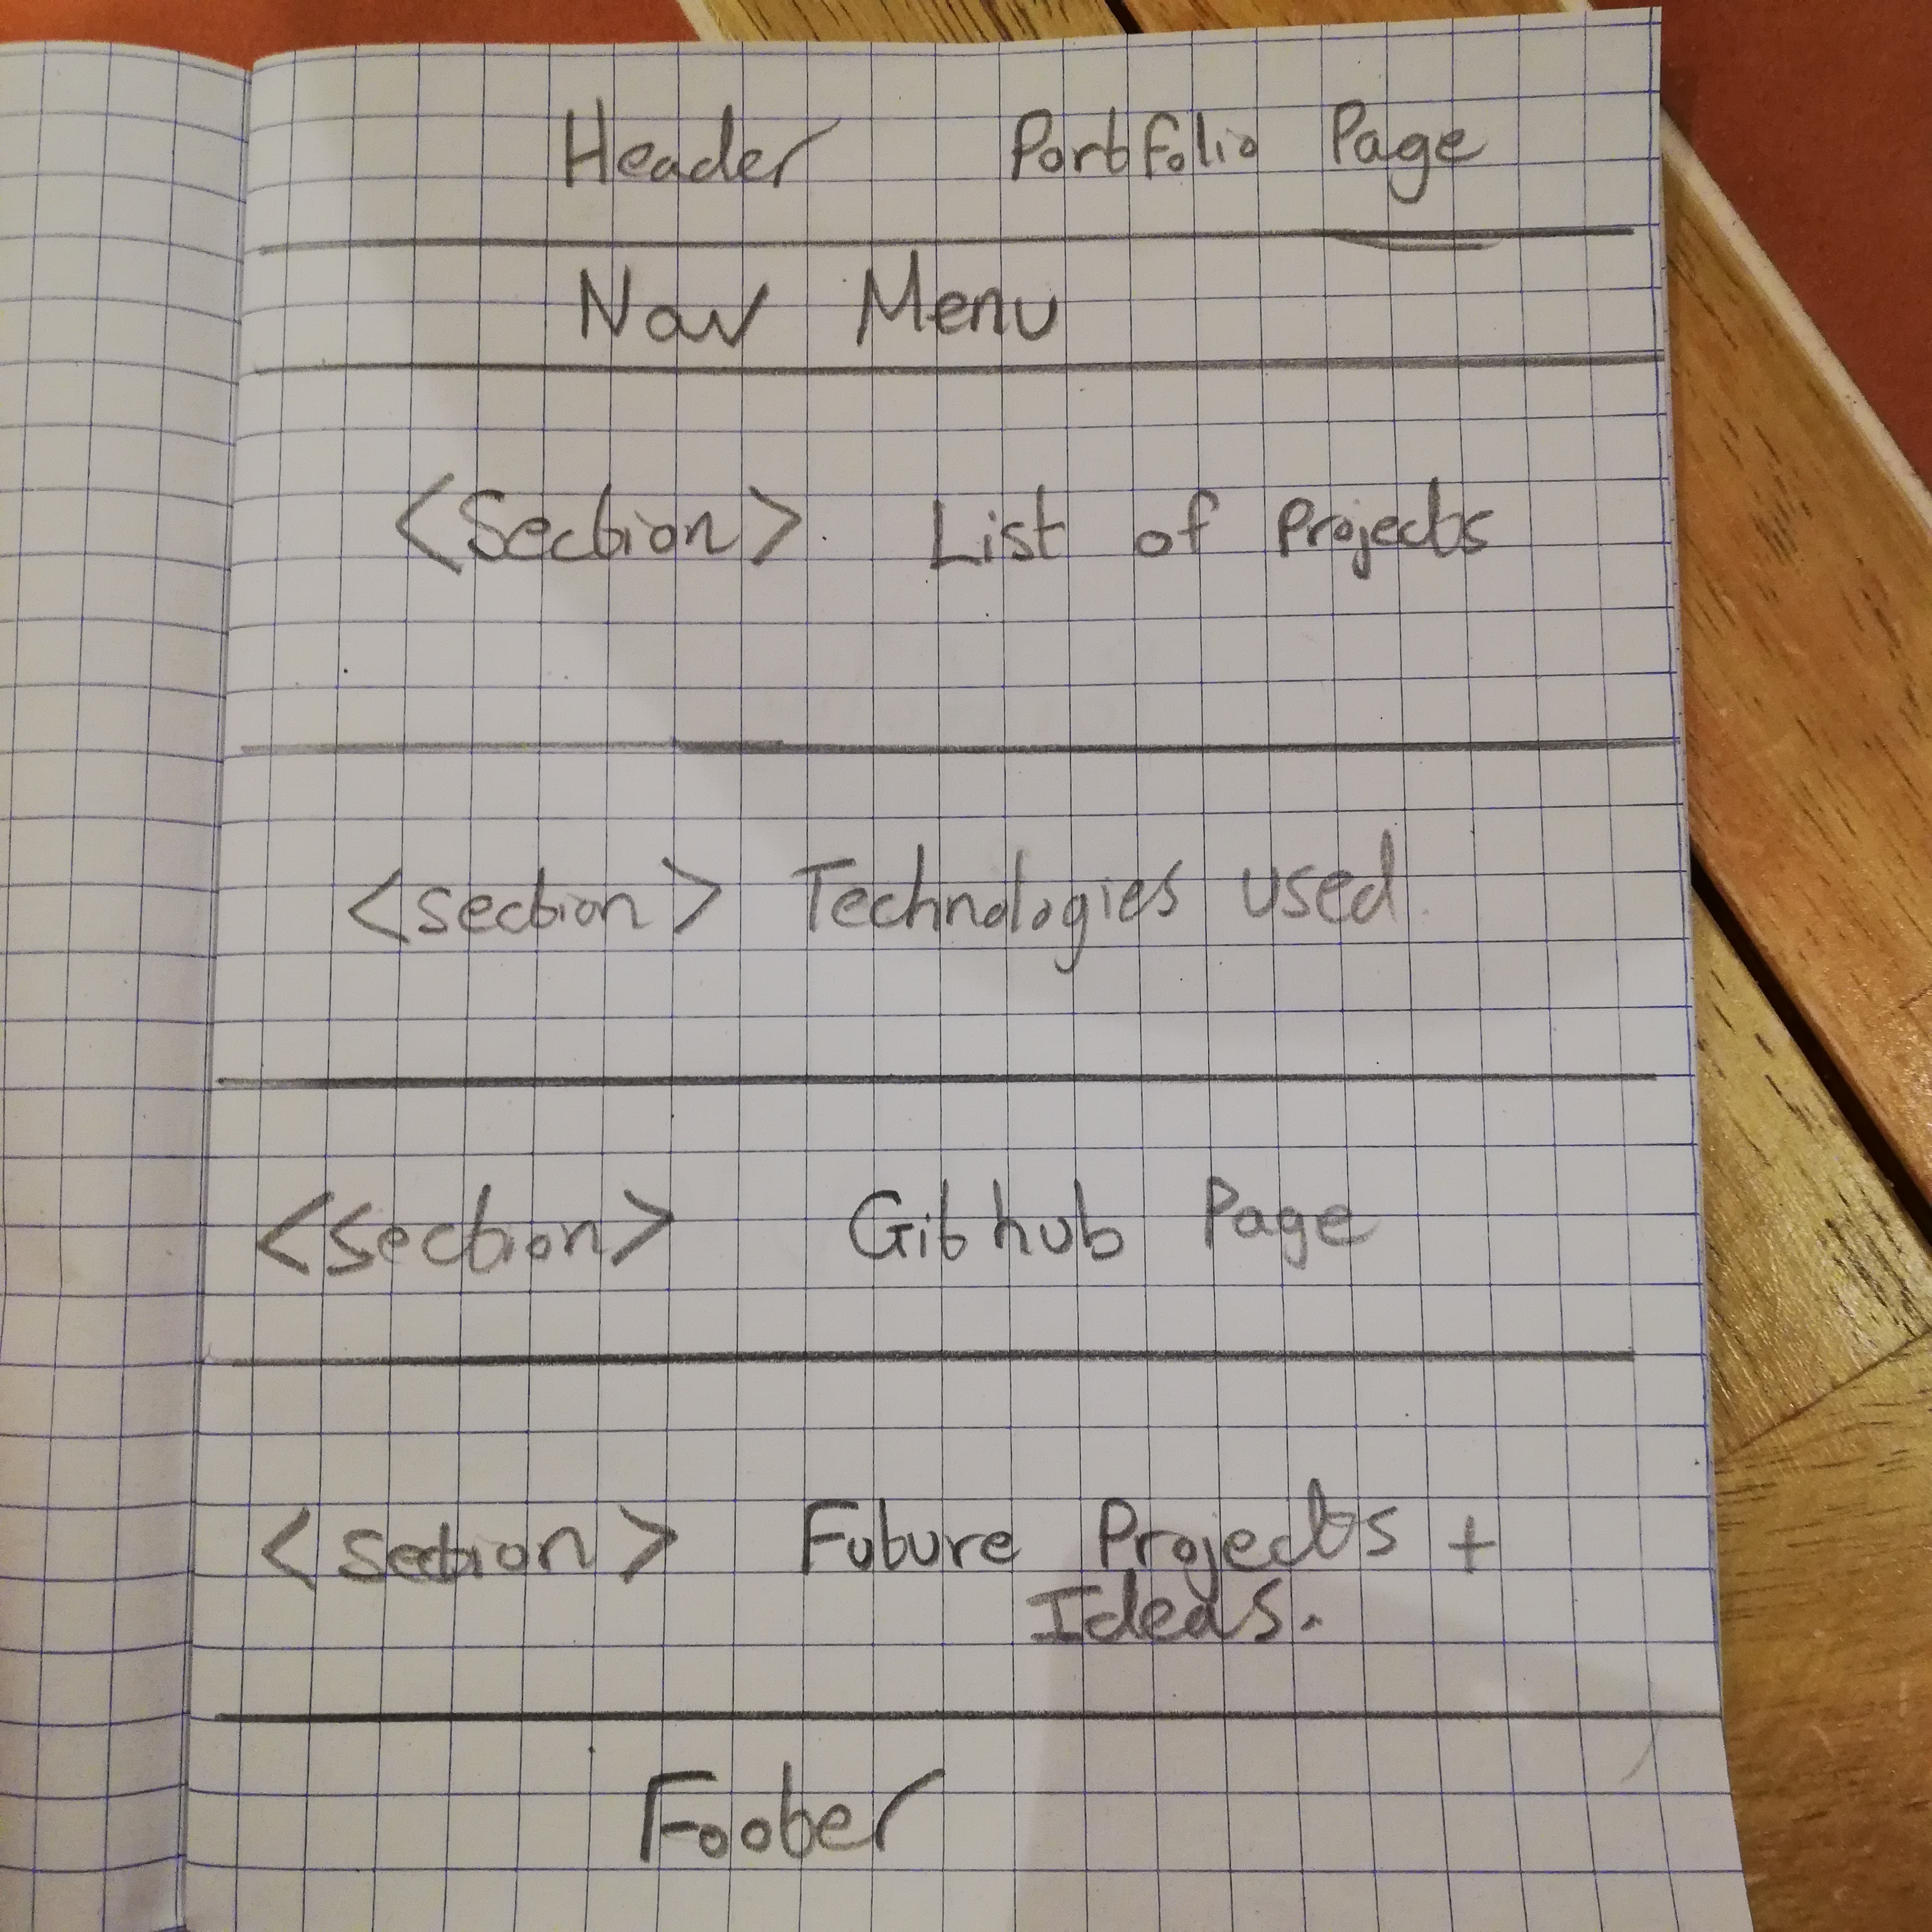 Header Portfolio Page
Nav Menu
<Section> List of Projects
<section> Technologies used
<section> Github Page
<section> Future Projects +
Ideas.
Footer